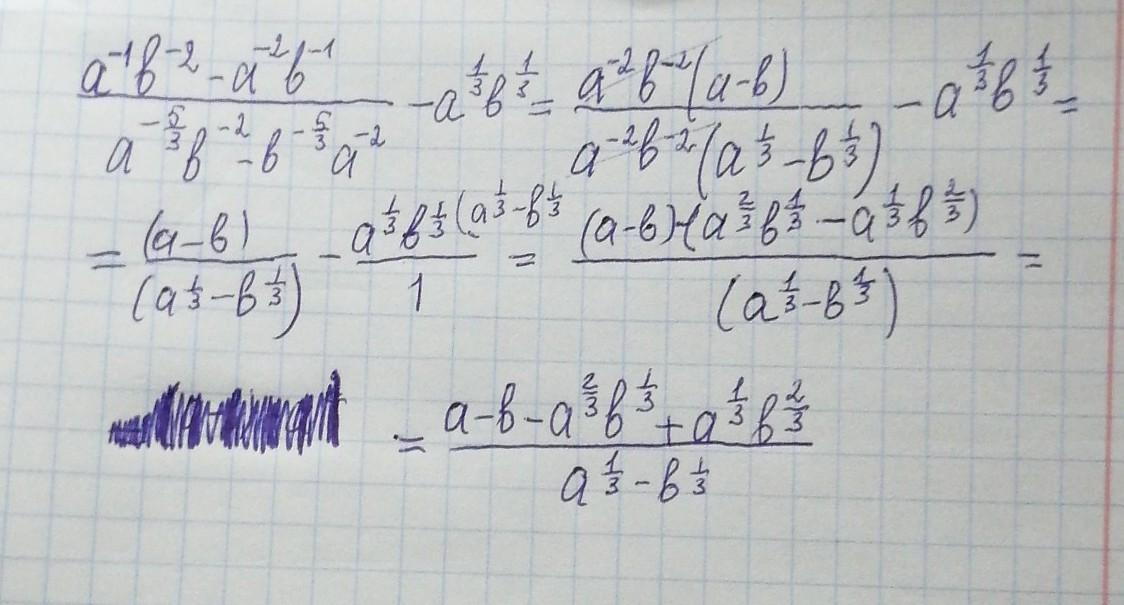 (a⁻¹b⁻² - a⁻²b⁻¹)/(a^(-5/3)b⁻² - b^(-5/3)a⁻²) - a^(1/3)b^(1/3) = (a⁻²b⁻²(a-b))/(a⁻²b⁻²(a^(1/3) - b^(1/3))) - a^(1/3)b^(1/3) =
= (a-b)/(a^(1/3) - b^(1/3)) - (a^(1/3)b^(1/3)(a^(1/3) - b^(1/3))/1 = ((a-b)-(a^(2/3)b^(1/3) - a^(1/3)b^(2/3)))/(a^(1/3) - b^(1/3)) =
= (a-b-a^(2/3)b^(1/3) + a^(1/3)b^(2/3))/(a^(1/3) - b^(1/3))